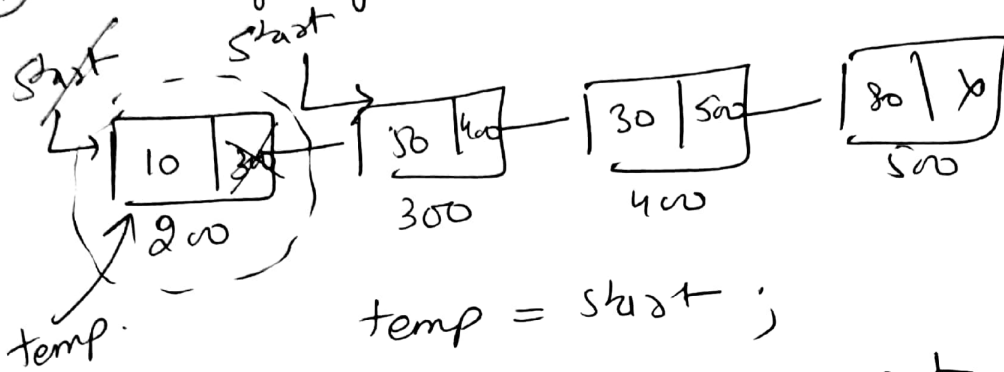 start
start
10 | 300
50 | 400
30 | 500
80 | X
200
300
400
500
temp.
temp = start ;